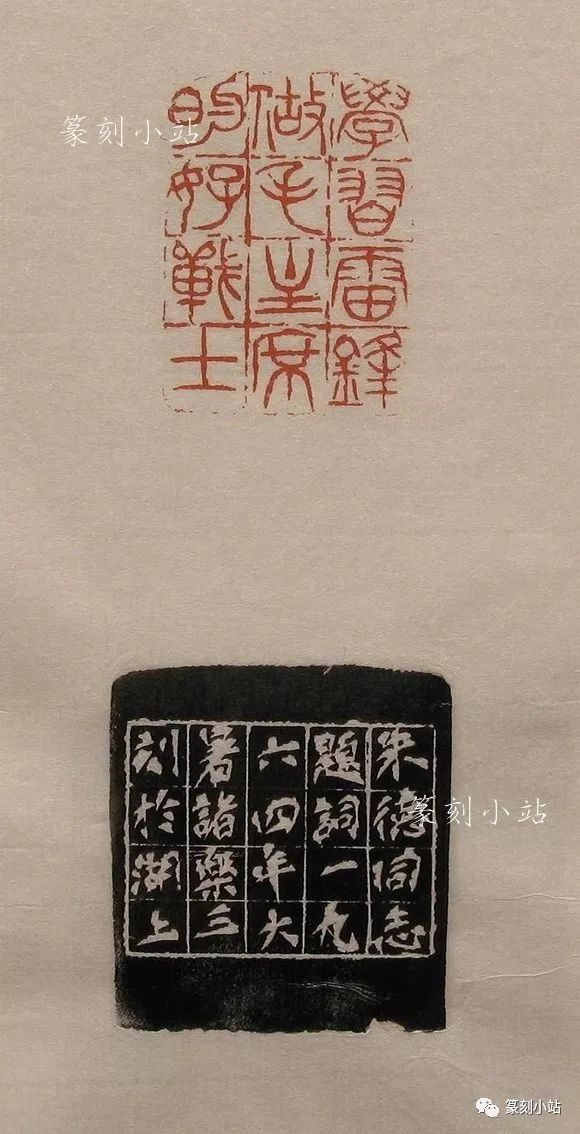 篆刻小站
學習雷鋒
做毛主席
的好戰士
朱德同志
題詞一九
六四年大
暑諸樂三
刻於湖上
篆刻小站
篆刻小站